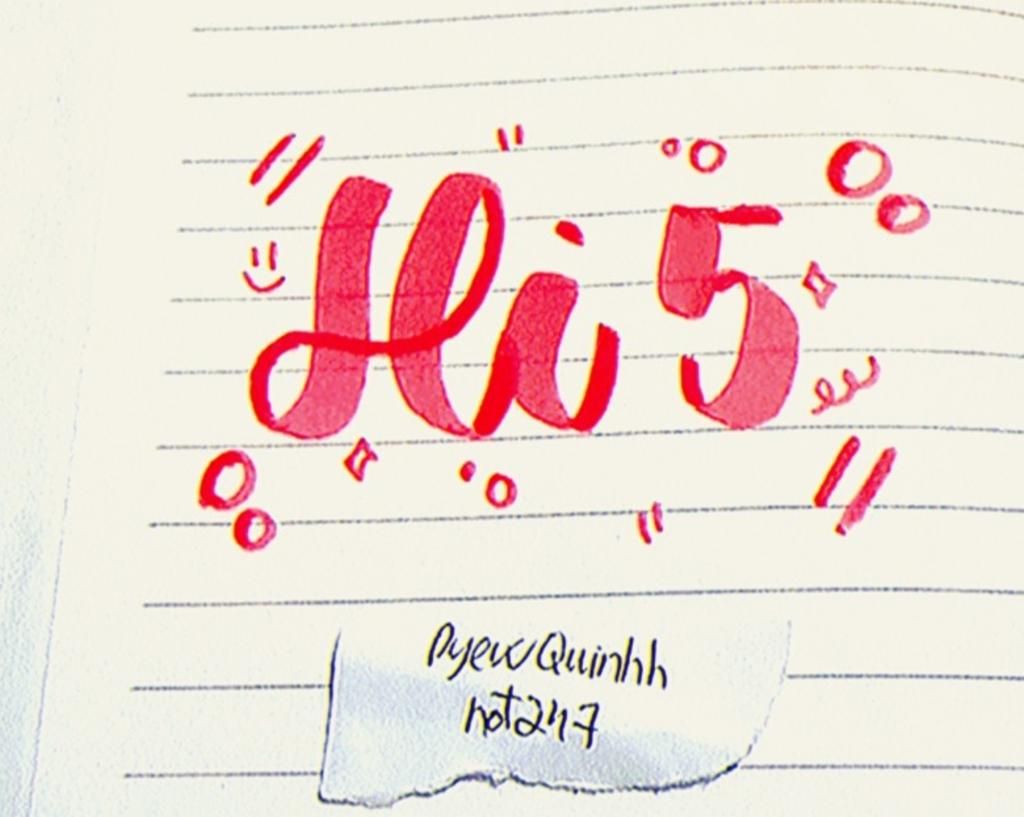 Hi 5
PyewQuinhh
not247